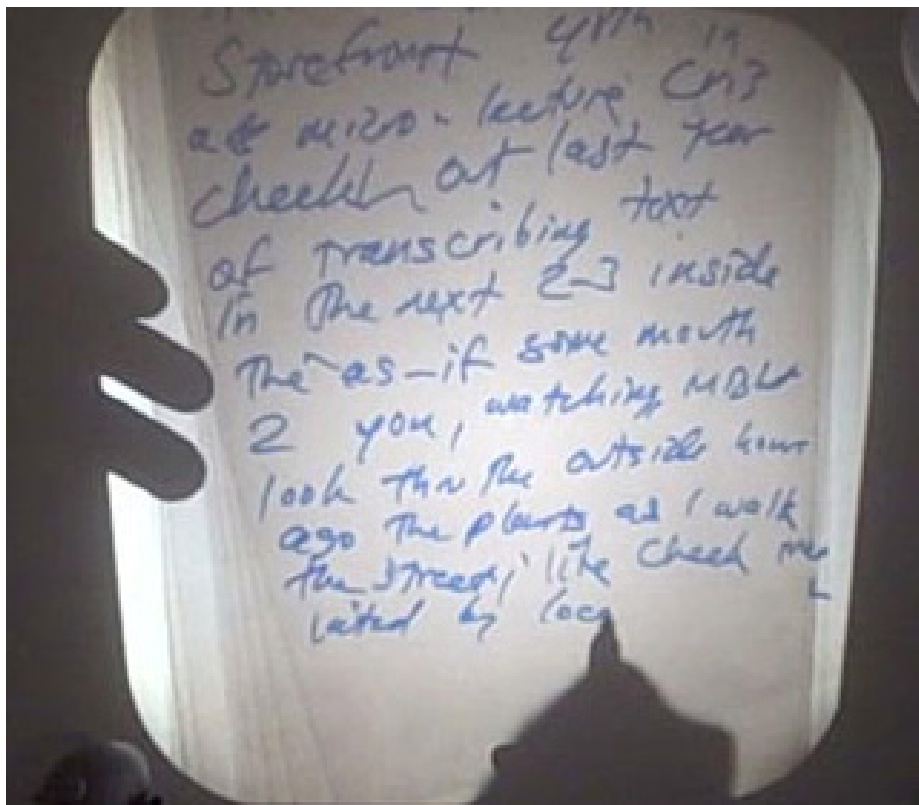 Storefront 4th in
at micro-lecture
check out last year
of transcribing text
in the next 2-3 inside
The as-if some mouth
2 you, watching
look thru the outside hour
ago the plants as I walk
the street, like check me
by loca